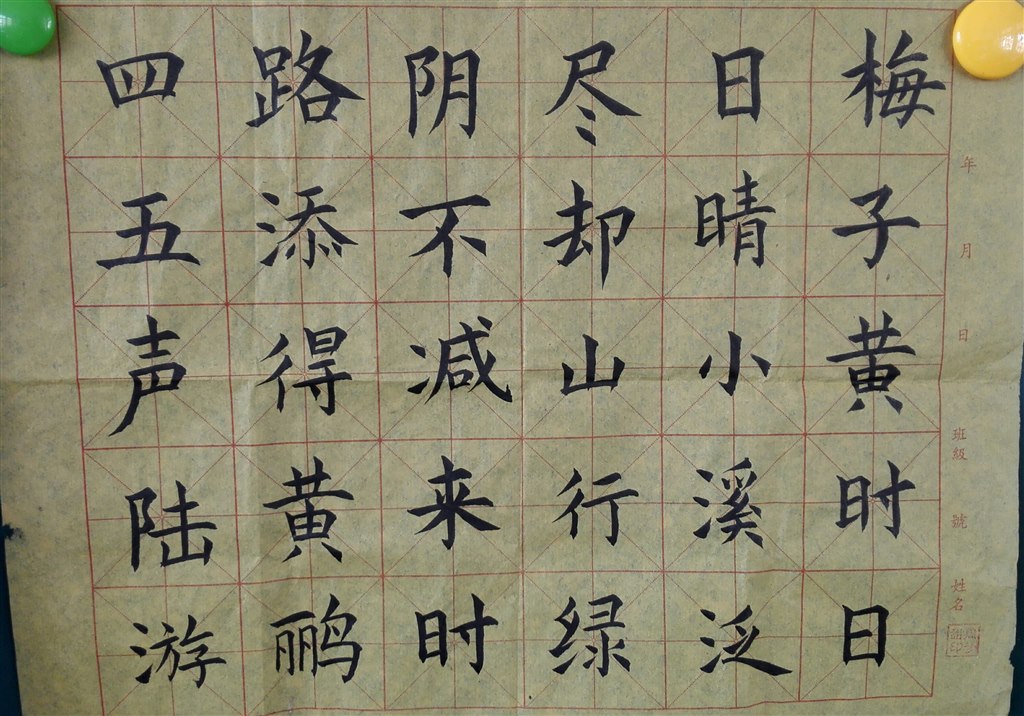 梅子黄时日
日晴小溪泛
尽却山行绿
阴不减来时
路添得黄鹂
四五声陆游
年 月 日 班級 號 姓名